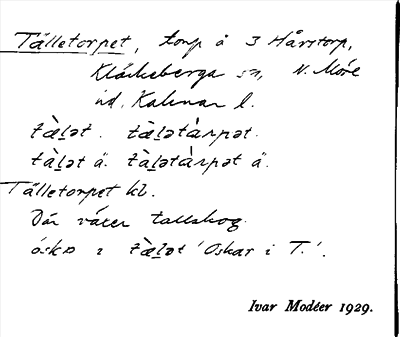 Tälletorpet, torp å 3 Hårstorp,
Kläckeberga sn, N. Möre
hd, Kalmar l.
tæ̀l̠ət. tæ̀l̠ətàrpət.
tàl̠ət ä. tàl̠ətàrpət ä.
Tälletorpet kl.
Där växer tallskog.
óskɒ i tæ̀l̠ət 'Oskar i T.'.
Ivar Modéer 1929.